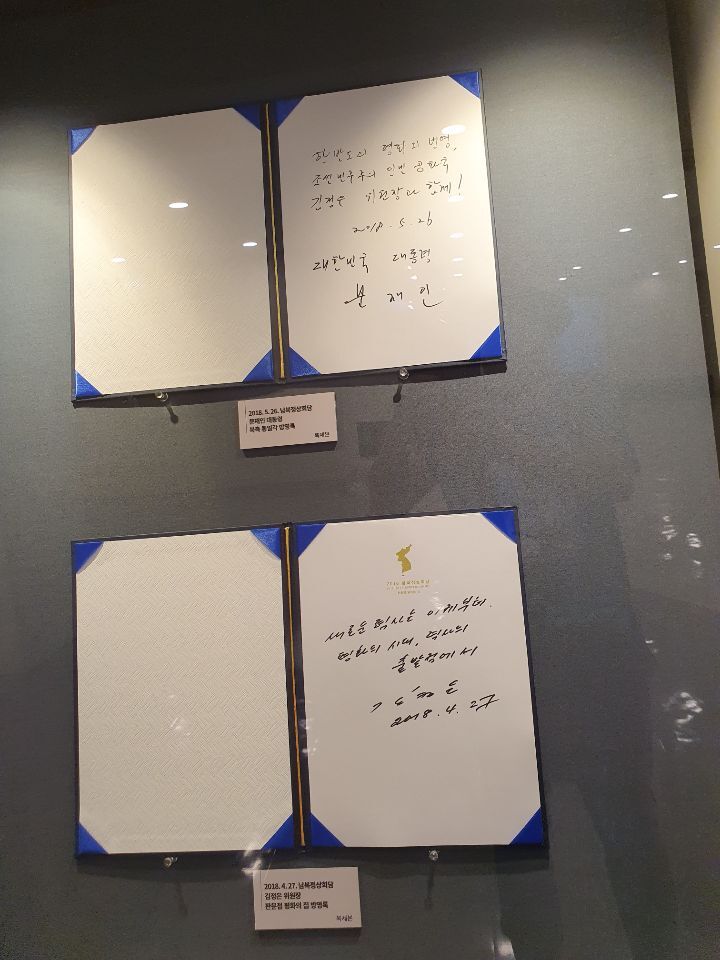 한반도의 평화와 번영,
조선민주주의 인민 공화국
김정은 위원장과 함께!
2018. 5. 26
대한민국 대통령
문 재 인
2018. 5. 26. 남북정상회담
문재인 대통령
북측 통일각 방명록
복제본
2018 남북정상회담
새로운 력사는 이제부터.
평화의 시대, 력사의
출발점에서
김정은
2018. 4. 27
2018. 4. 27. 남북정상회담
김정은 위원장
판문점 평화의 집 방명록
복제본